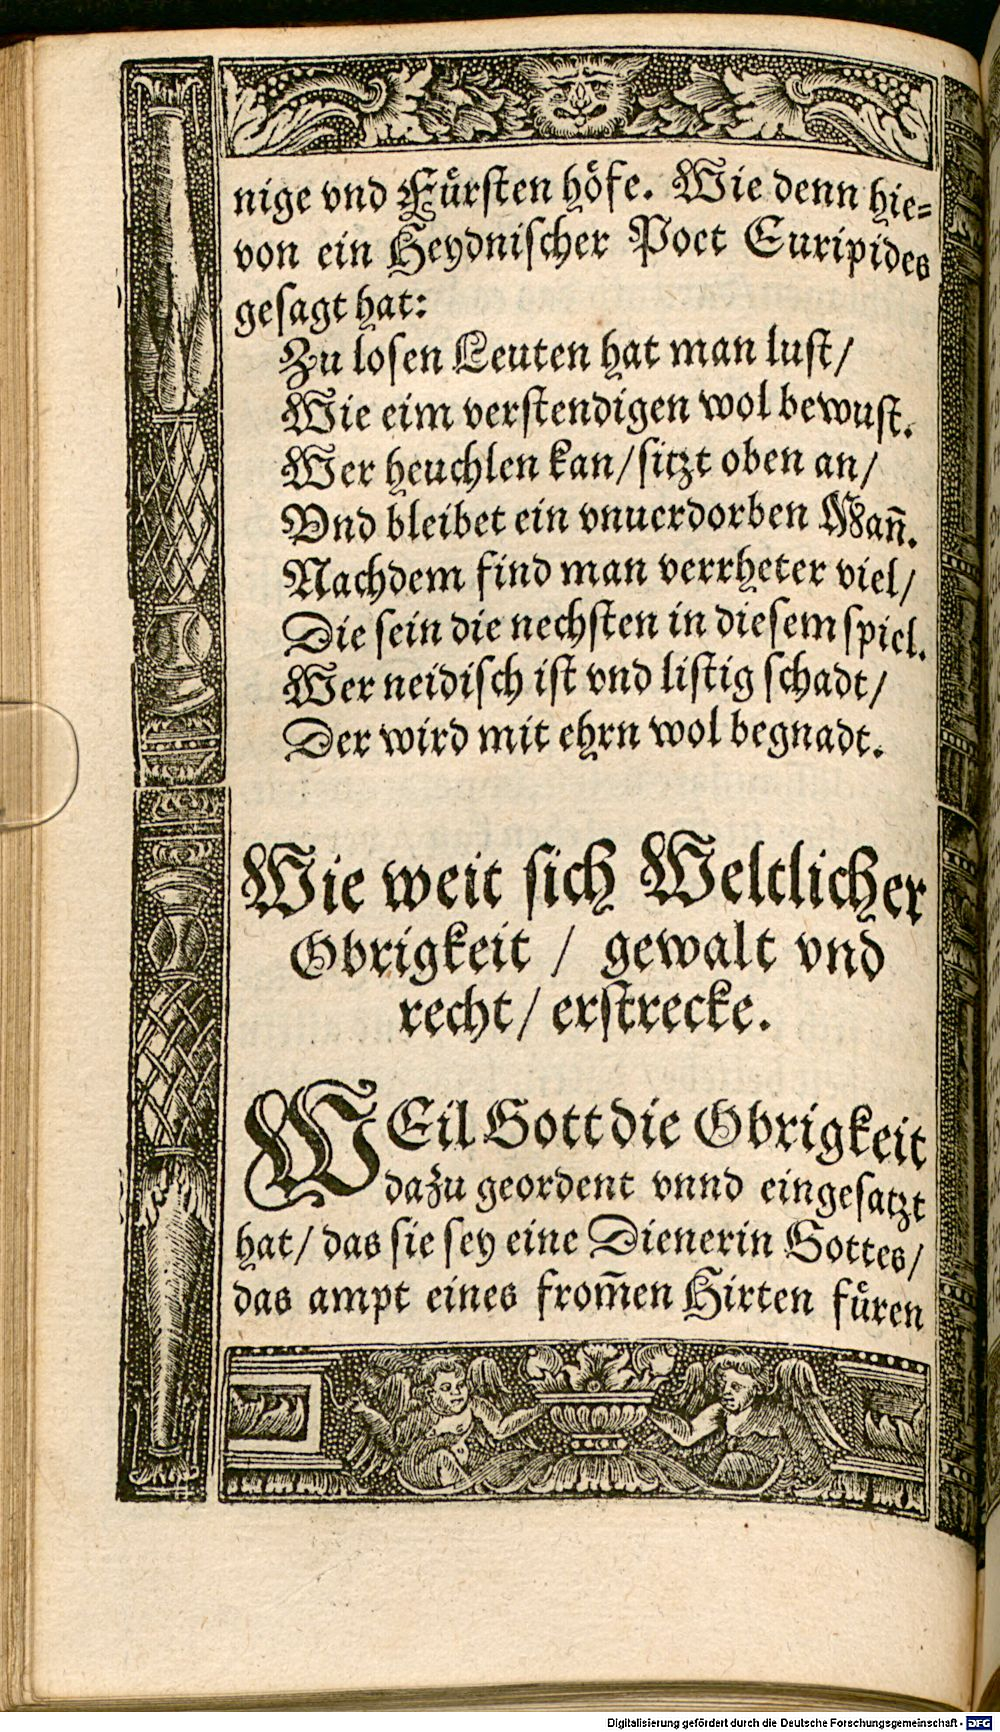 nige vnd Fürsten höfe. Wie denn hie=
von ein Heydnischer Poet Euripides
gesagt hat:
Zu losen Leuten hat man lust/
Wie eim verstendigen wol bewust.
Wer heuchlen kan/sitzt oben an/
Vnd bleibet ein vnuerdorben Mañ.
Nachdem find man verrheter viel/
Die sein die nechsten in diesem spiel.
Wer neidisch ist vnd listig schadt/
Der wird mit ehrn wol begnadt.
Wie weit sich Weltlicher
Obrigkeit / gewalt vnd
recht/ erstrecke.
WEil Gott die Obrigkeit
dazu geordent vnnd eingesatzt
hat/ das sie sey eine Dienerin Gottes/
das ampt eines from̃en Hirten füren
Digitalisierung gefördert durch die Deutsche Forschungsgemeinschaft - DFG